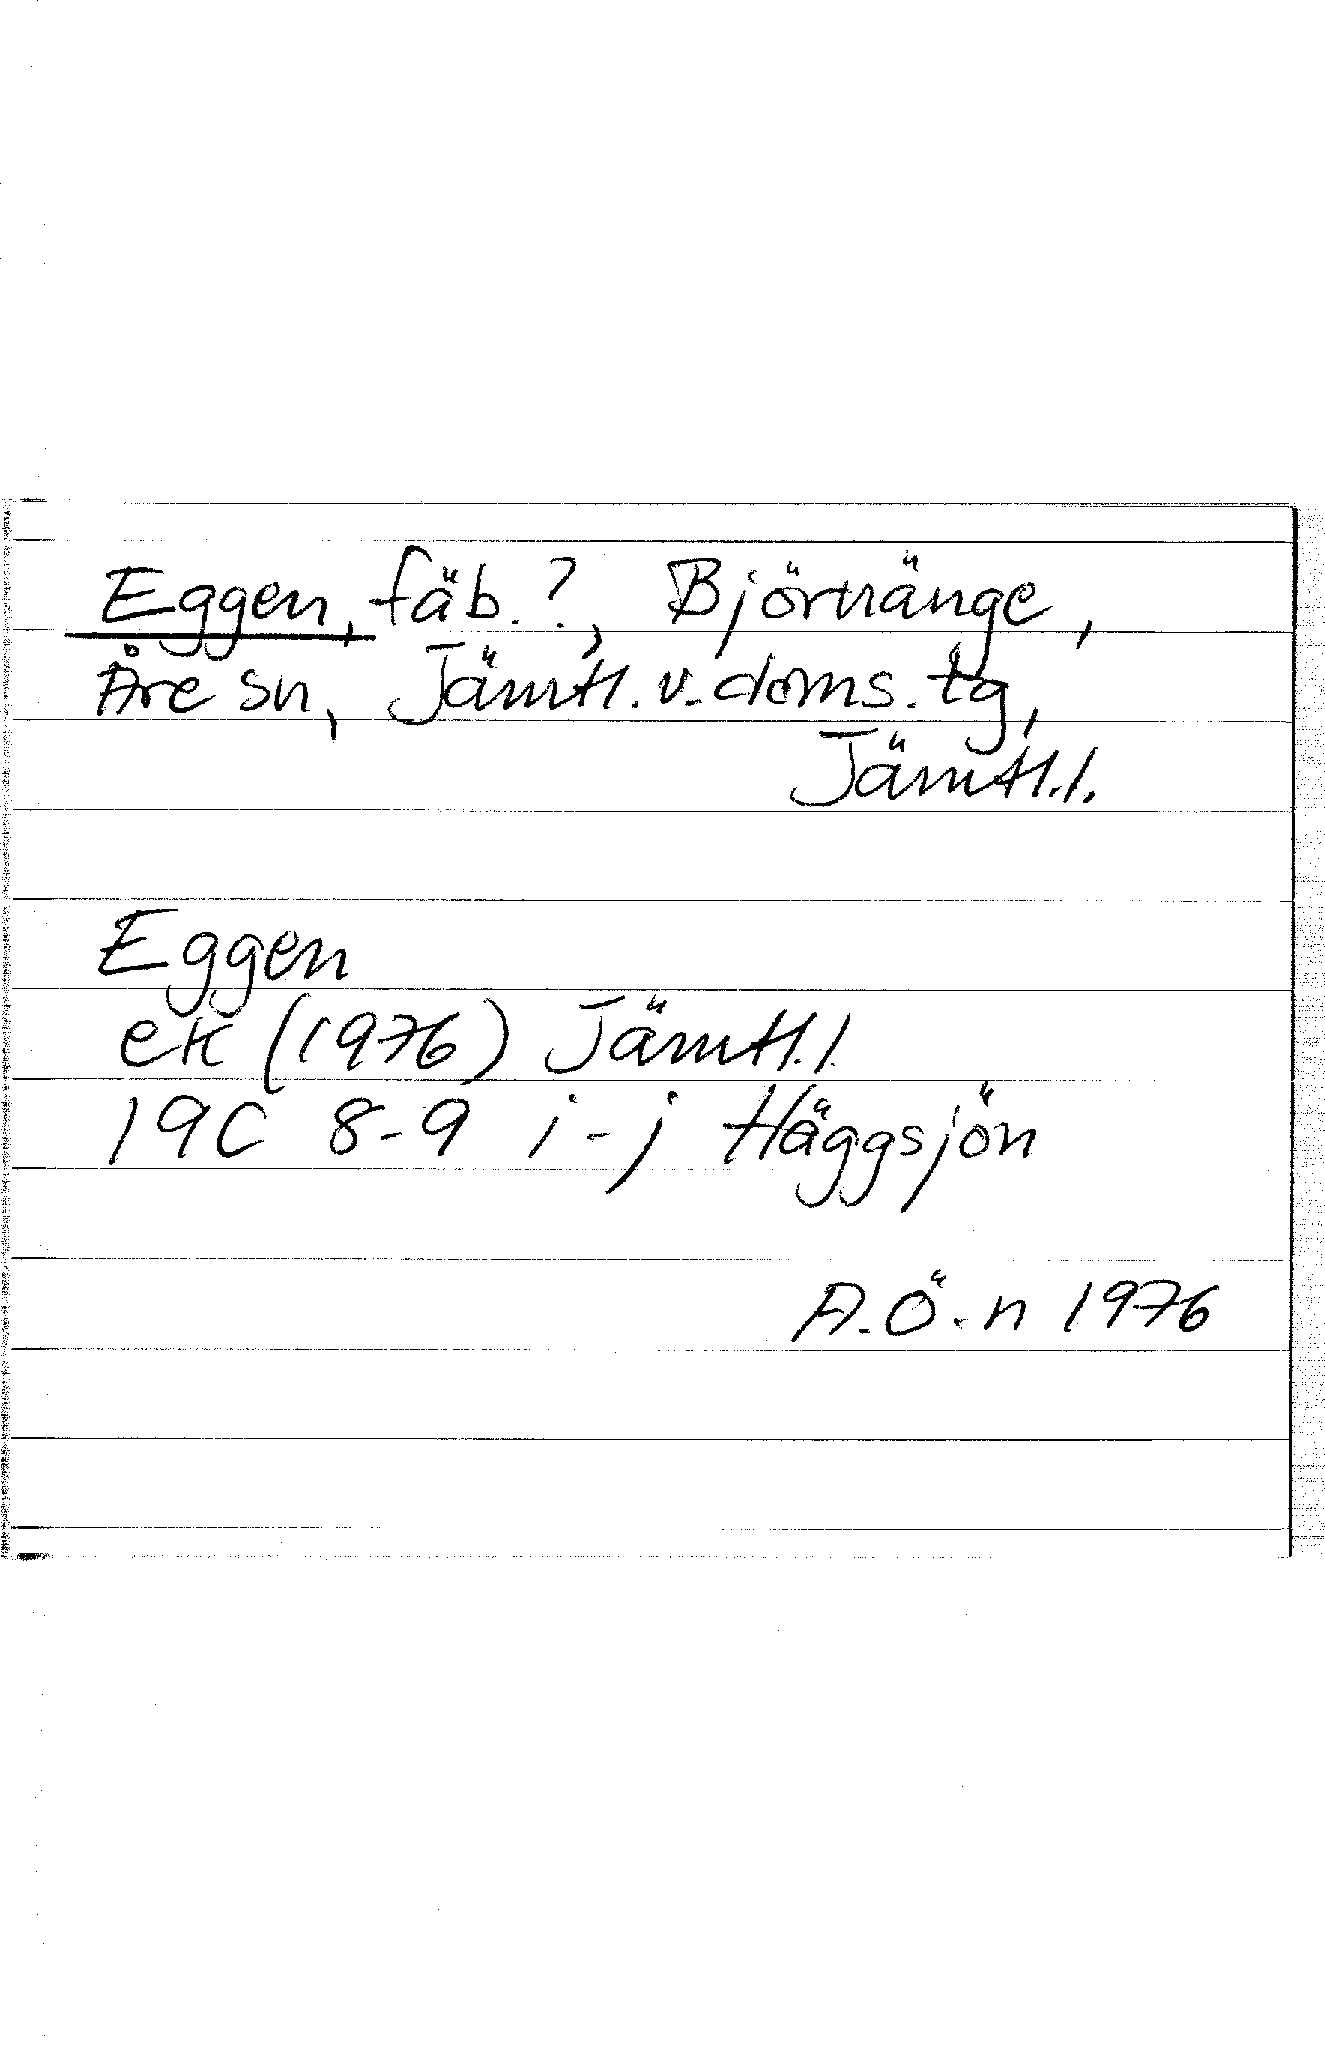 Eggen, fäb. ?, Björnänge,
Åre sn, Jämtl. v. doms. tg,
Jämtl. l.
Eggen
ek (1976) Jämtl. l
19C 8-9 i-j Häggsjön
A. Ö-n 1976